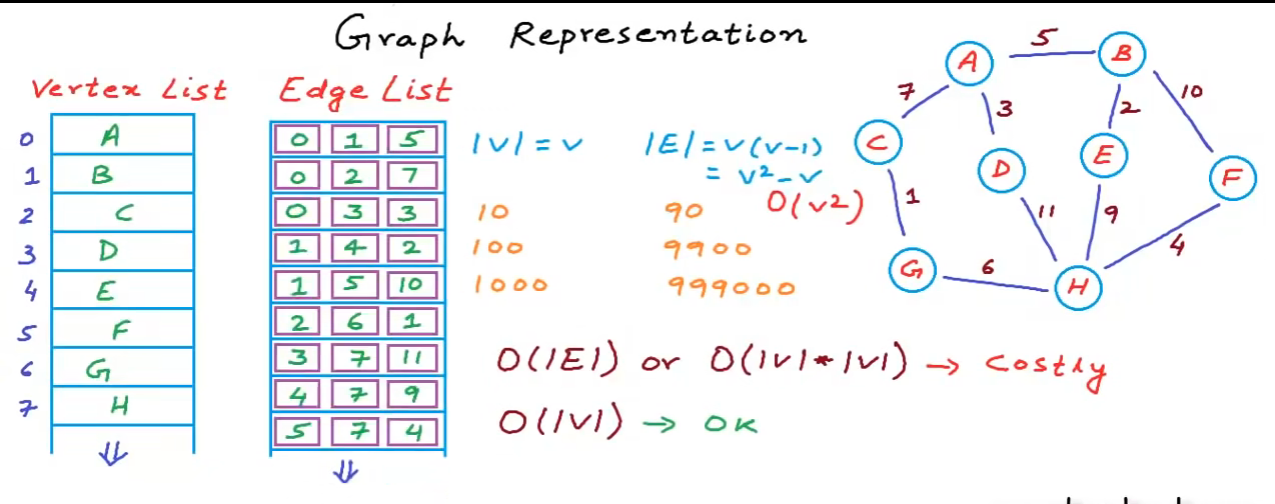 Graph Representation
Vertex List
0 A
1 B
2 C
3 D
4 E
5 F
6 G
7 H
Edge List
0 1 5
0 2 7
0 3 3
1 4 2
1 5 10
2 6 1
3 7 11
4 7 9
5 7 4
|V| = v |E| = v(v-1)
= v2 - v
O(v2)
10 90
100 9900
1000 999000
O(|E|) or O(|V|*|V|) → Costly
O(|V|) → OK
A 5 B
7 3 2 10
C D E F
1 11 9 4
G 6 H